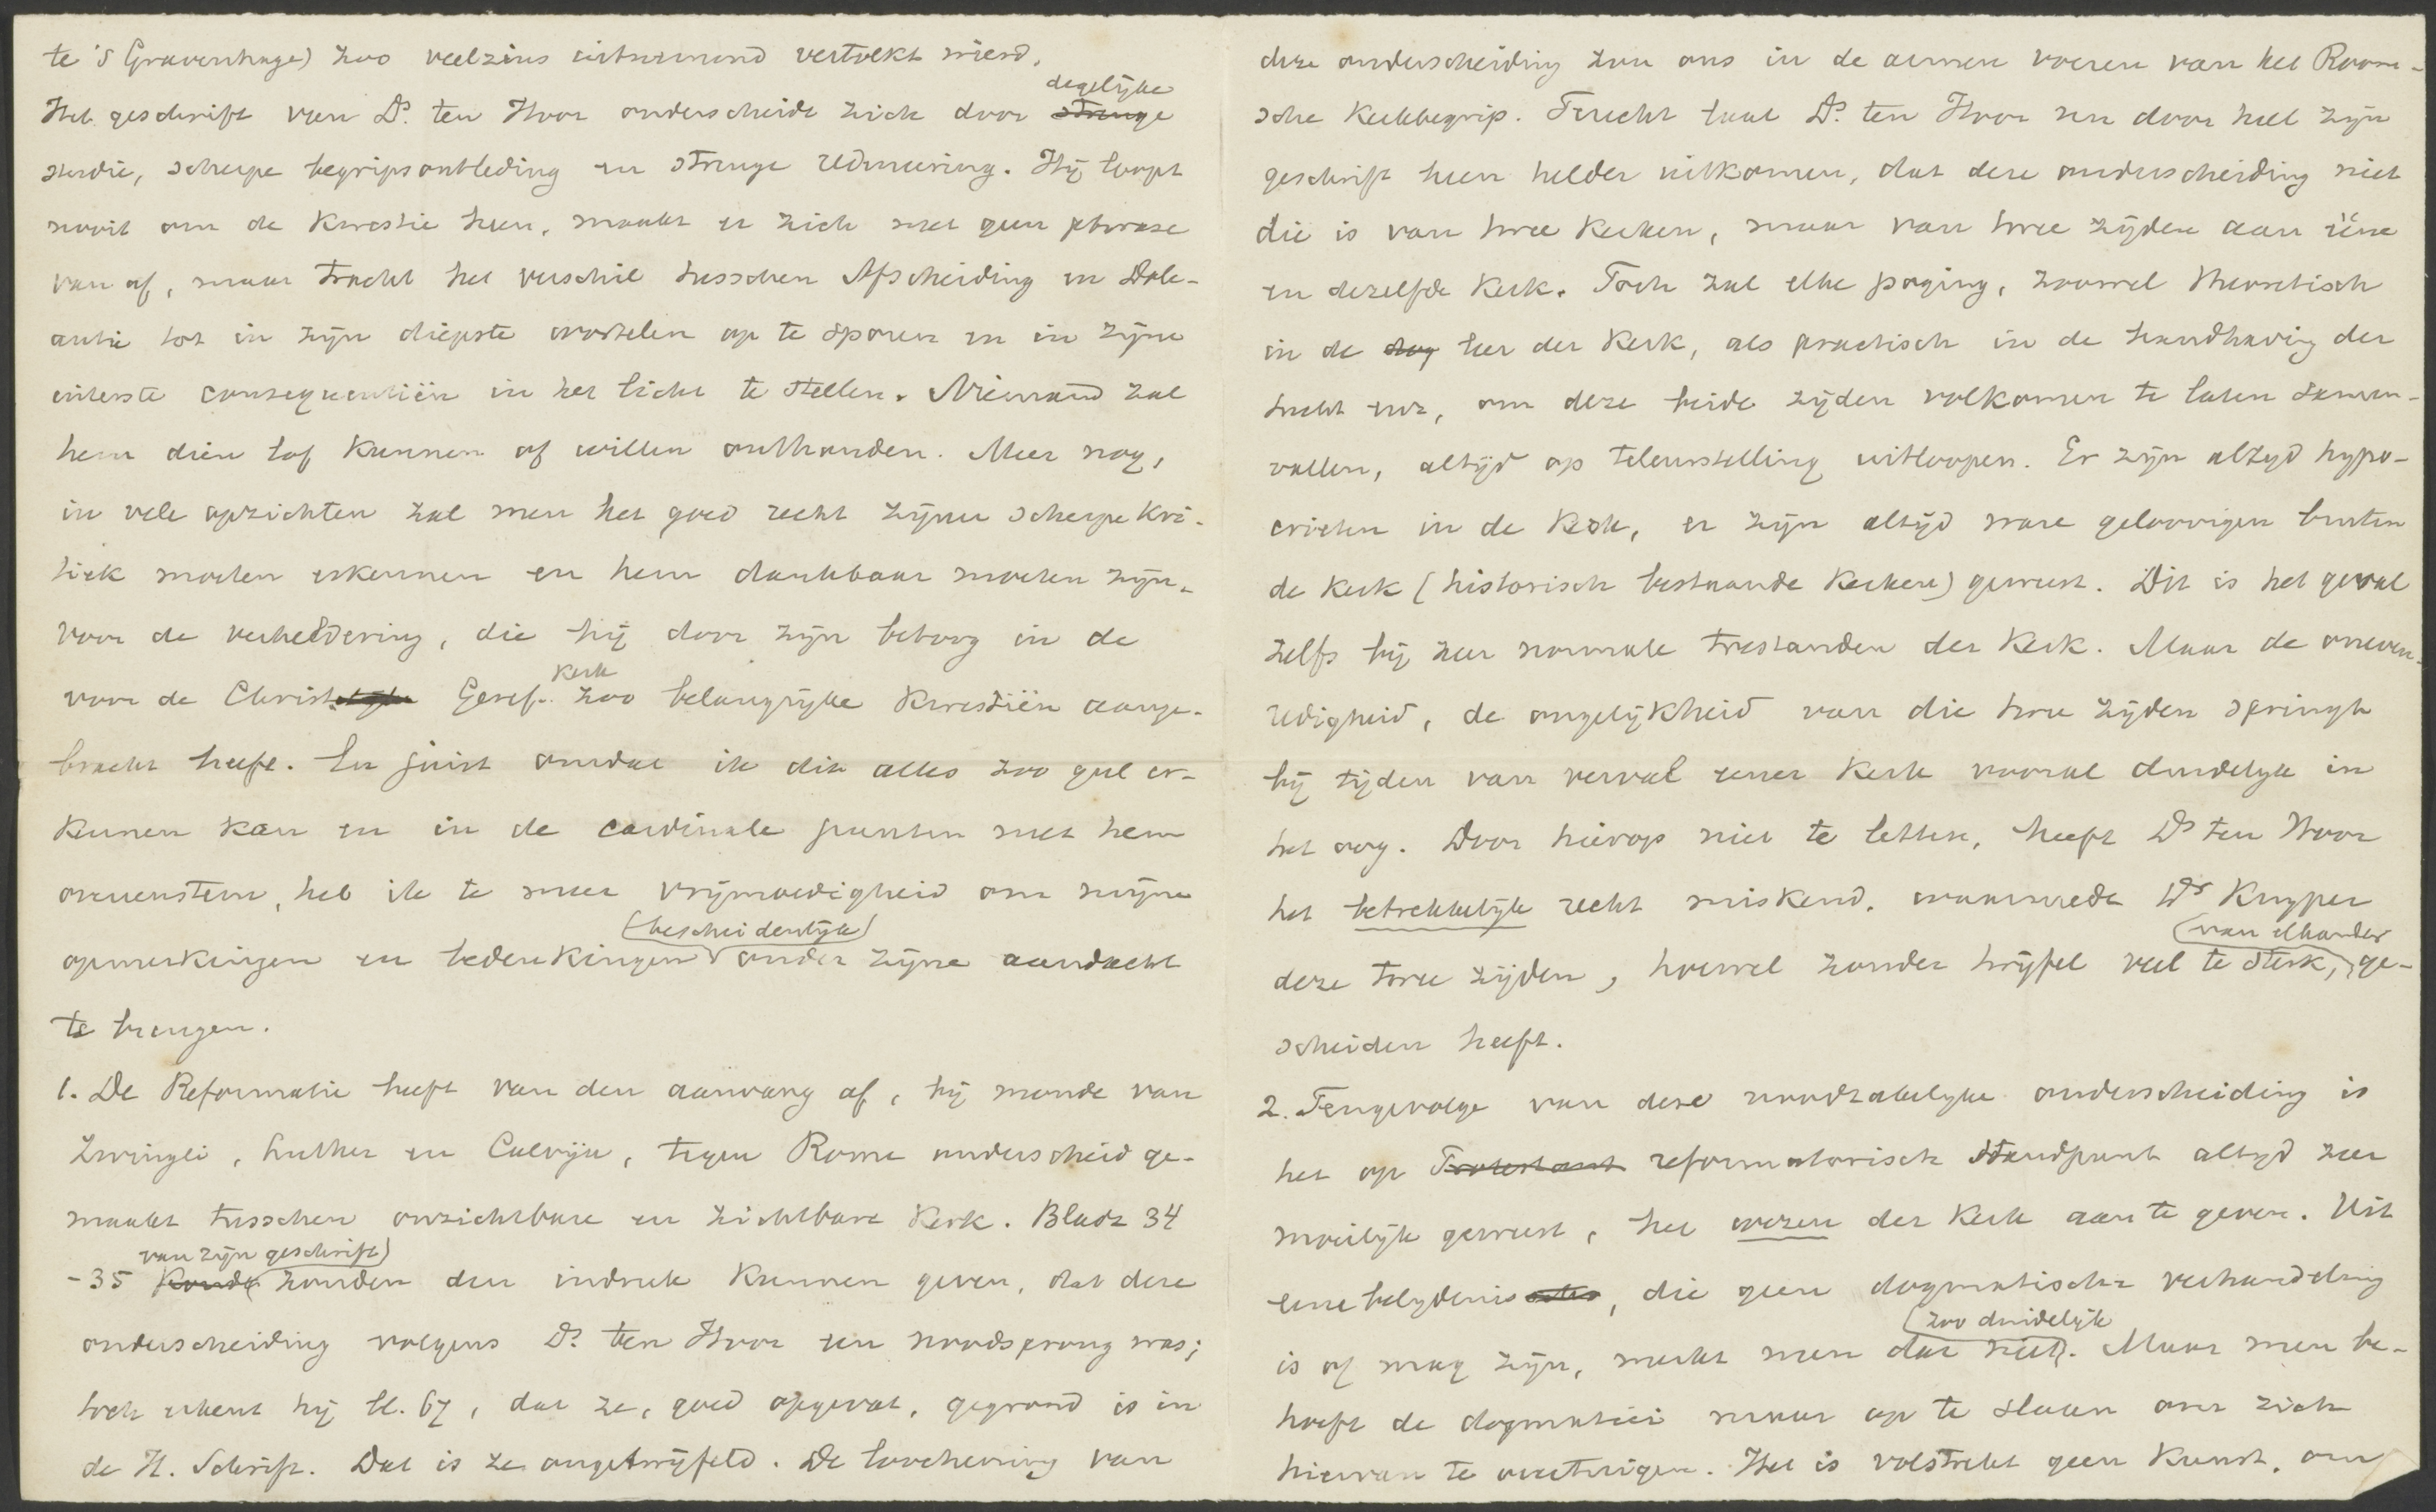 te 's Gravenhage) zoo veelzins uitnemend vertolkt werd.
degelijke
Het geschrift van Ds. ten Hoor onderscheidt zich door strenge
studie, scherpe begripsontleding en strenge redeneering. Hij loopt
nooit om de kwestie heen, maakt er zich met geen phrase
van af, maar tracht het verschil tusschen Afscheiding en Dole-
antie tot in zijn diepste wortelen op te sporen en in zijne
uiterste consequentiën in het licht te stellen. Niemand zal
hem dien lof kunnen of willen onthouden. Meer nog,
in vele opzichten zal men het goed recht zijner scherpe kri-
tiek moeten erkennen en hem dankbaar moeten zijn
voor de verheldering, die hij door zijn betoog in de
Kerk
voor de Christelijke Geref. zoo belangrijke kwestiën aange-
bracht heeft. En juist omdat ik dit alles zoo gul er-
kennen kan en in de cardinale punten met hem
overeenstem, heb ik te meer vrijmoedigheid om mijne
(bescheidenlijk)
opmerkingen en bedenkingen onder zijne aandacht
te brengen.
1. De Reformatie heeft van den aanvang af, bij monde van
Zwingli, Luther en Calvijn, tegen Rome onderscheid ge-
maakt tusschen onzichtbare en zichtbare Kerk. Bladz 34
van zijn geschrift)
-35 zouden den indruk kunnen geven, dat deze
onderscheiding volgens Ds. ten Hoor een noodsprong was;
toch erkent hij bl. 67, dat ze, goed opgevat, gegrond is in
de H. Schrift. Dat is ze ongetwijfeld. De loochening van
deze onderscheiding zou ons in de armen voeren van het Room-
sche Kerkbegrip. Terecht laat Ds. ten Hoor nu door heel zijn
geschrift heen helder uitkomen, dat deze onderscheiding niet
die is van twee Kerken, maar van twee zijden aan ééne
en dezelfde Kerk. Toch zal elke poging, zoowel theoretisch
in de leer der Kerk, als practisch in de handhaving der
tucht enz, om deze beide zijden volkomen te laten samen-
vallen, altijd op teleurstelling uitloopen. Er zijn altyd hypo-
crieten in de Kerk, er zijn altijd ware geloovigen buiten
de Kerk (historisch bestaande Kerken) geweest. Dit is het geval
zelfs bij zeer normale toestanden der Kerk. Maar de oneven-
redigheid, de ongelijkheid van die twee zijden springt
bij tijden van verval eener Kerk vooral duidelyk in
het oog. Door hierop niet te letten, heeft Ds ten Hoor
het betrekkelijk recht miskend, waarmede Dr Kuyper
(van elkander
deze twee zijden, hoewel zonder twijfel veel te sterk, ge-
scheiden heeft.
2. Tengevolge van deze noodzakelyke onderscheiding is
het op Protestant reformatorisch standpunt altyd zeer
moeilijk geweest, het wezen der Kerk aan te geven. Uit
eene belydenis, die geen dogmatische verhandeling
(zoo duidelijk
is of mag zijn, merkt men dat niet. Maar men be-
hoeft de dogmatici maar op te slaan om zich
hiervan te overtuigen. Het is volstrekt geen kunst, om